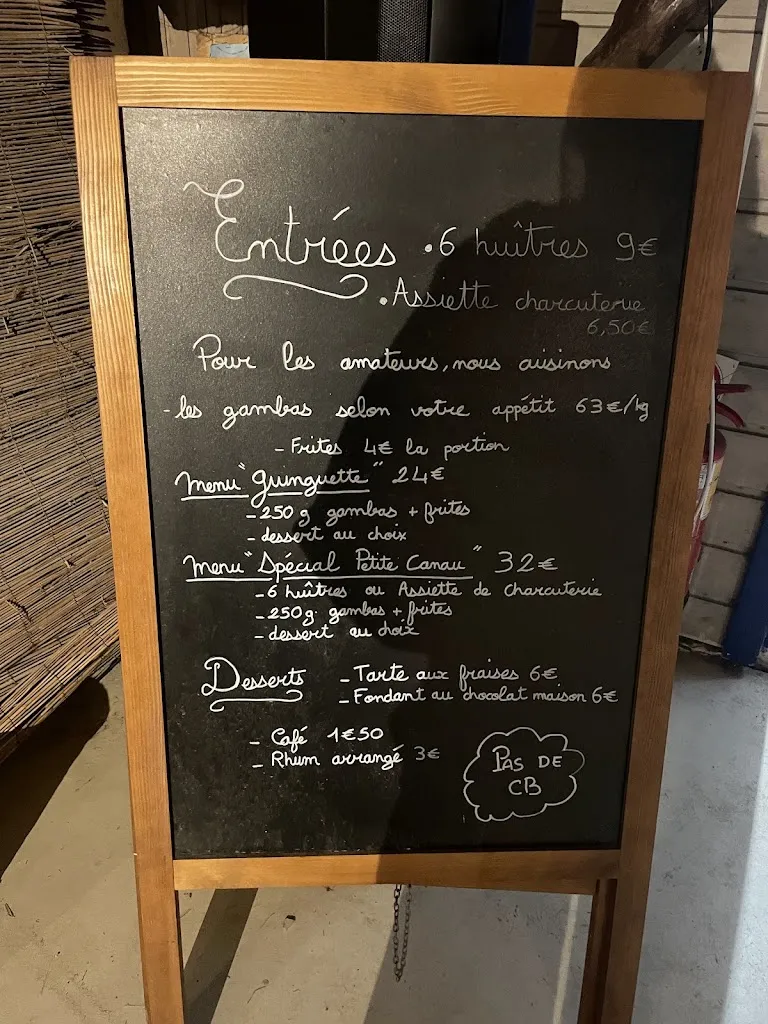 Entrées • 6 huîtres 9€
• Assiette charcuterie
6,50€
Pour les amateurs, nous cuisinons
- les gambas selon votre appétit 63€/kg
- Frites 4€ la portion
Menu "Guinguette" 24€
- 250 g gambas + frites
- dessert au choix
Menu "Spécial Petite Canau" 32€
- 6 huîtres ou Assiette de charcuterie
- 250 g. gambas + frites
- dessert au choix
Desserts - Tarte aux fraises 6€
- Fondant au chocolat maison 6€
- Café 1€50
- Rhum arrangé 3€
PAS DE
CB